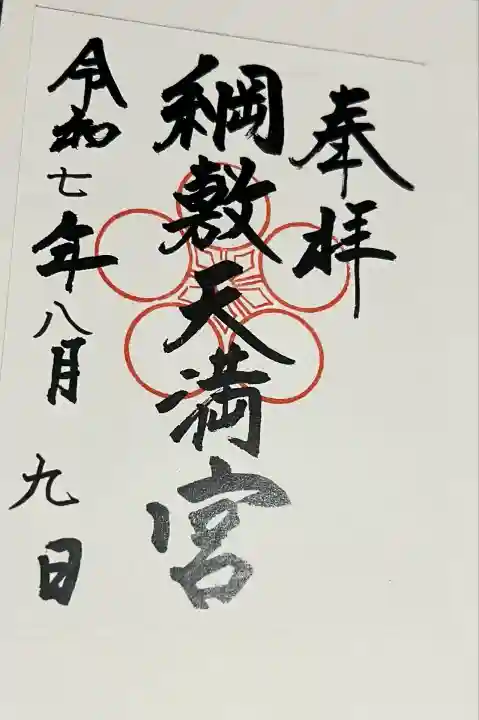 奉拝
綱敷天満宮
令和七年八月九日